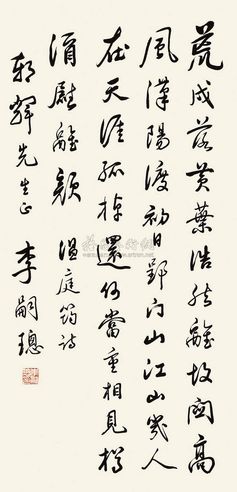 荒戍落黄葉浩然離故關高
風漢陽渡初日郢門山江山幾人
在天涯孤棹還何當重相見樽
酒慰離顏 溫庭筠詩
朝輝先生正 李嗣璁